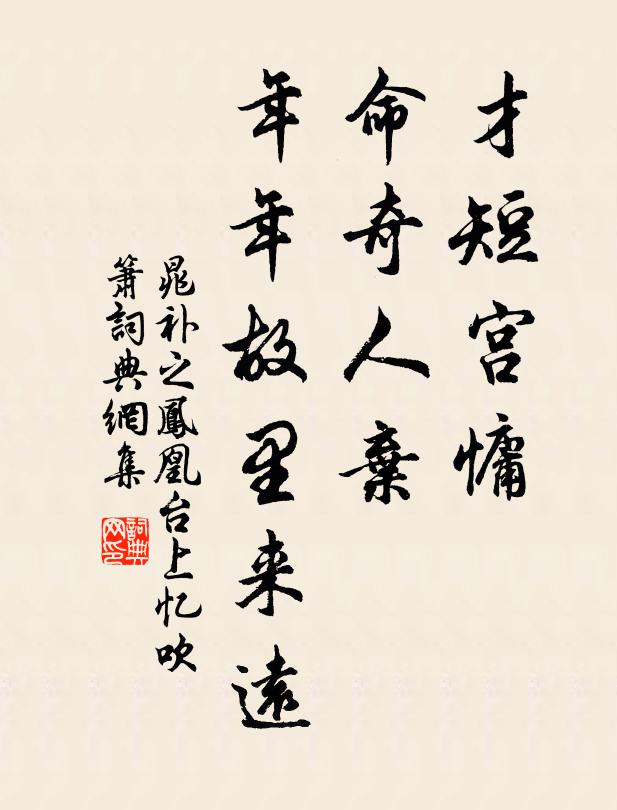 才短官慵
命奇人棄
年年故里来遠
晁补之鳳凰台上忆吹
箫詞典網集
詞典
网印